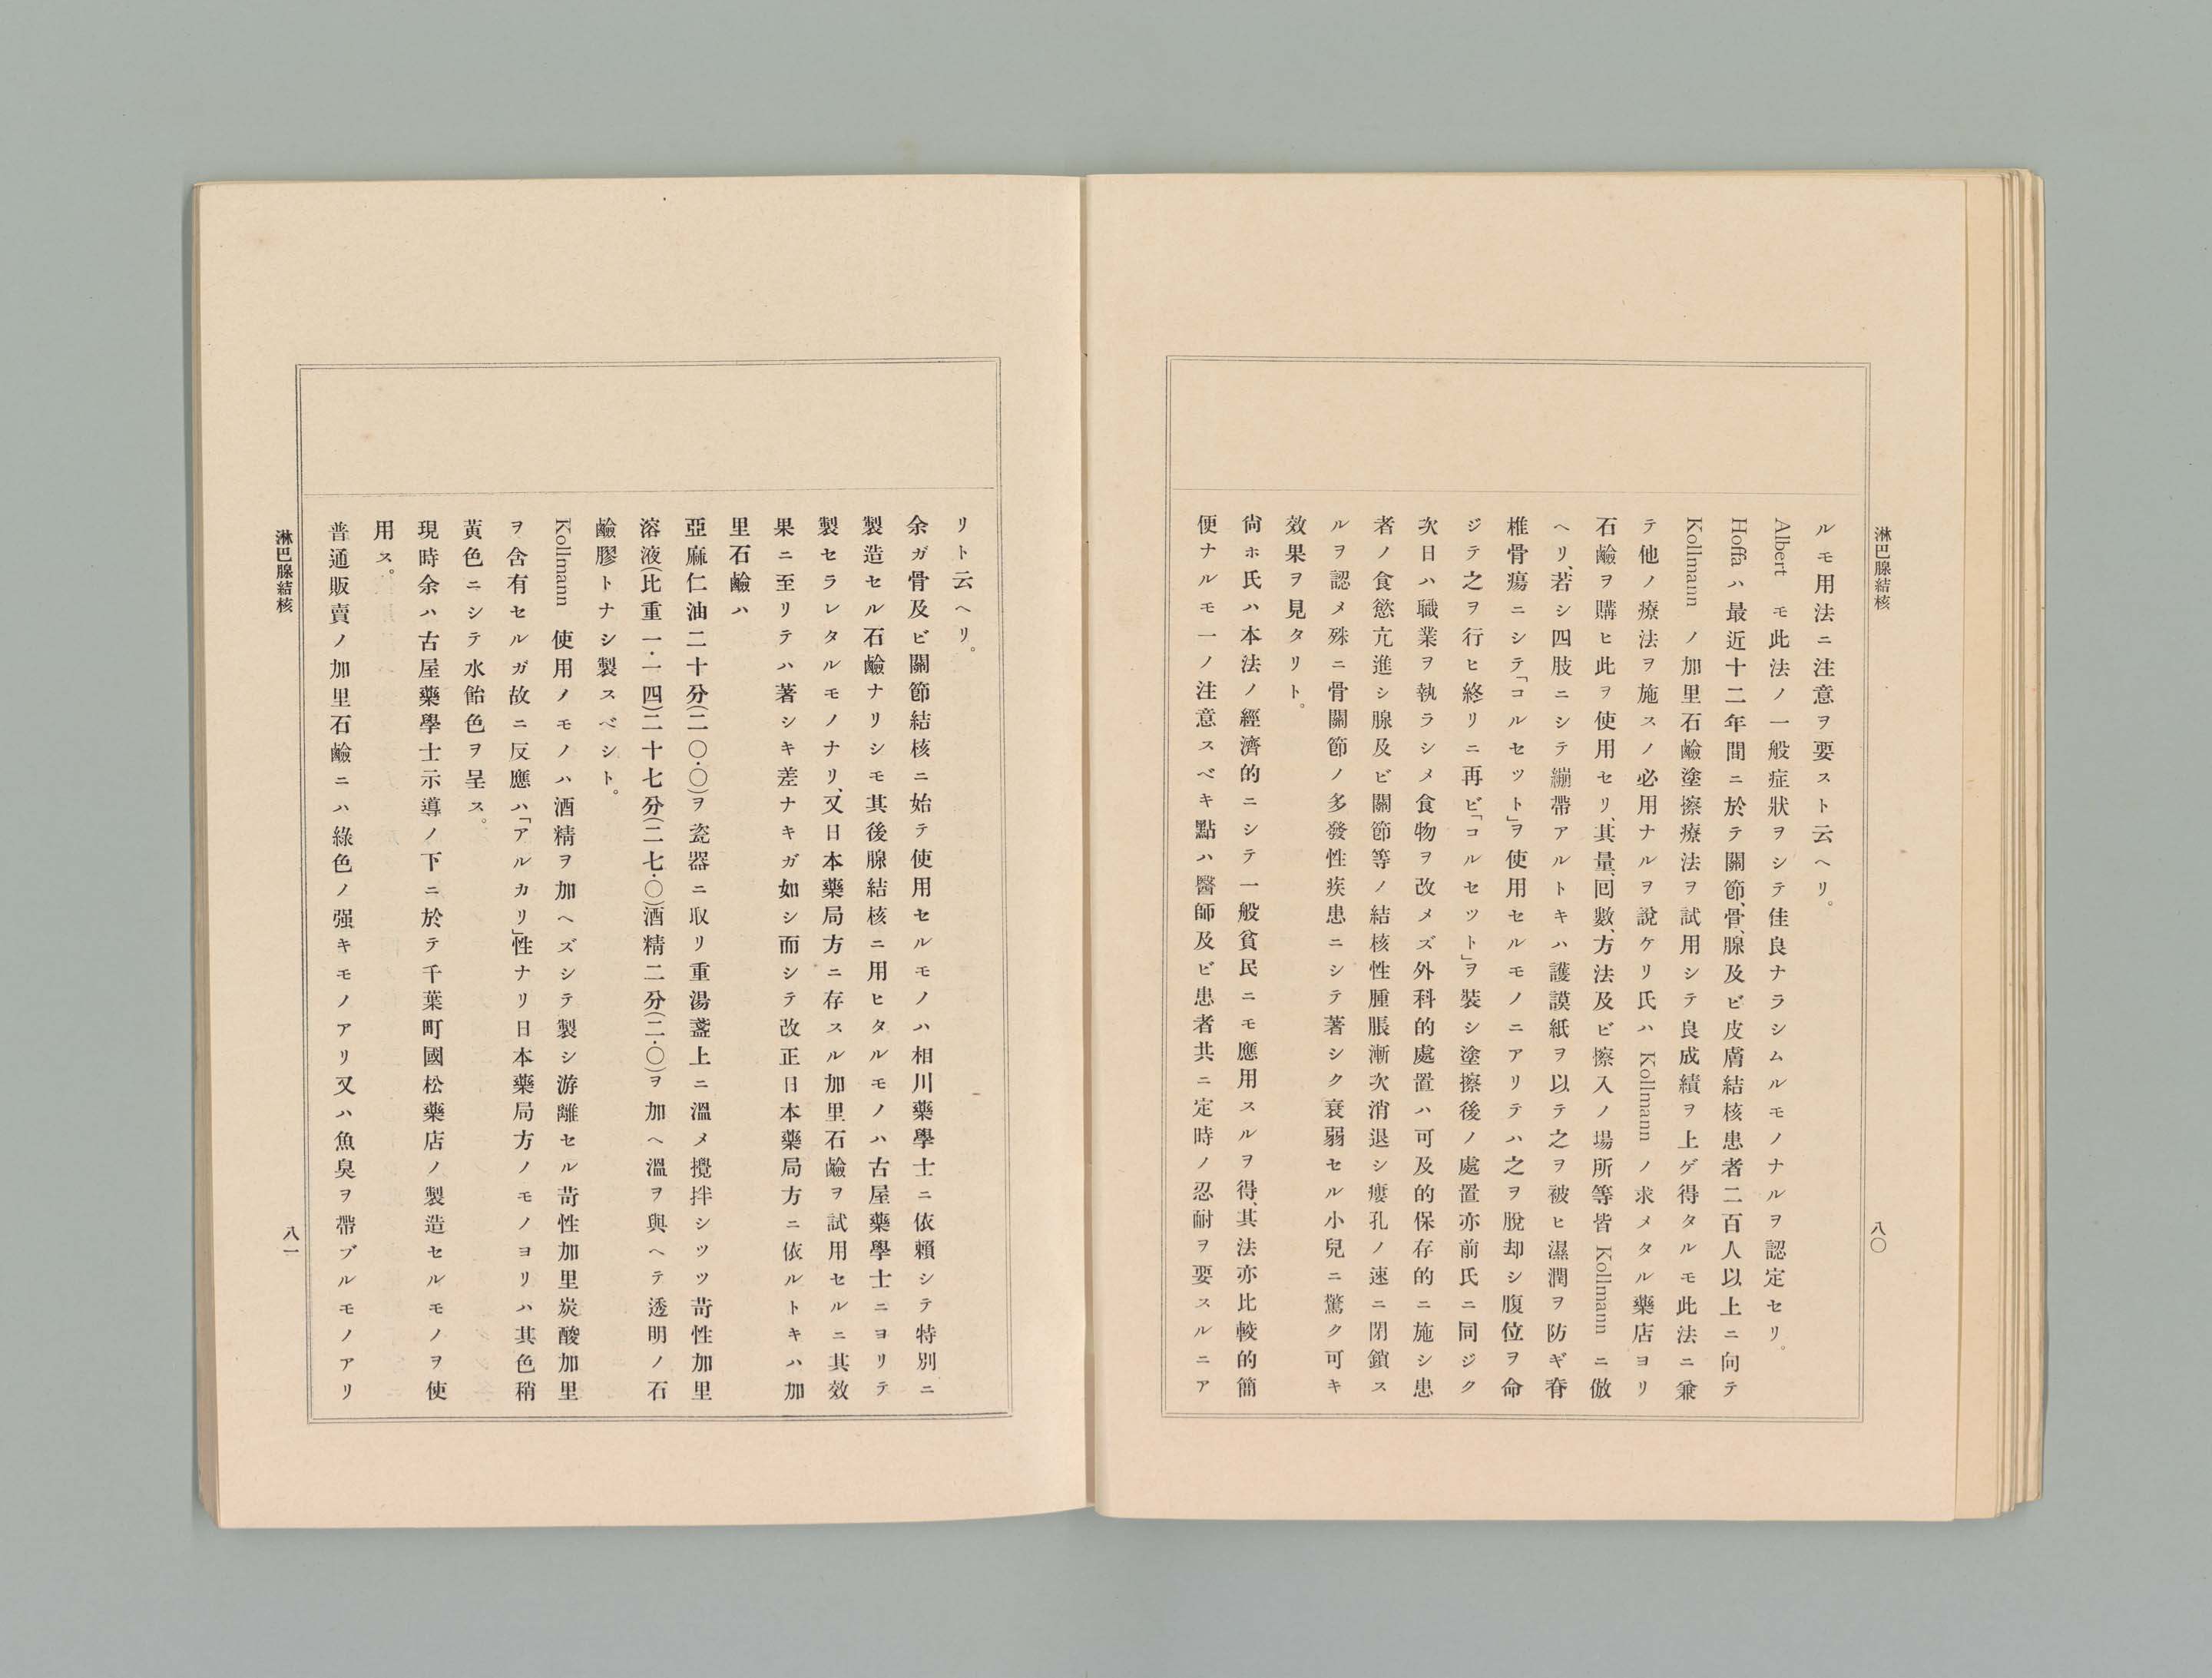 淋巴腺結核
八〇
ルモ用法ニ注意ヲ要スト云ヘリ。
Albert モ此法ノ一般症狀ヲシテ佳良ナラシムルモノナルヲ認定セリ。
Hoffa ハ最近十二年間ニ於テ關節、骨、腺及ビ皮膚結核患者二百人以上ニ向テ
Kollmann ノ加里石鹼塗擦療法ヲ試用シテ良成績ヲ上ゲ得タルモ此法ニ兼
テ他ノ療法ヲ施スノ必用ナルヲ說ケリ氏ハ Kollmann ノ求メタル藥店ヨリ
石鹼ヲ購ヒ此ヲ使用セリ、其量、回數、方法及ビ擦入ノ場所等皆 Kollmann ニ倣
ヘリ、若シ四肢ニシテ繃帶アルトキハ護謨紙ヲ以テ之ヲ被ヒ濕潤ヲ防ギ脊
椎骨瘍ニシテ「コルセツト」ヲ使用セルモノニアリテハ之ヲ脫却シ腹位ヲ命
ジテ之ヲ行ヒ終リニ再ビ「コルセツト」ヲ裝シ塗擦後ノ處置亦前氏ニ同ジク
次日ハ職業ヲ執ラシメ食物ヲ改メズ外科的處置ハ可及的保存的ニ施シ患
者ノ食慾亢進シ腺及ビ關節等ノ結核性腫脹漸次消退シ瘻孔ノ速ニ閉鎖ス
ルヲ認メ殊ニ骨關節ノ多發性疾患ニシテ著シク衰弱セル小兒ニ驚ク可キ
效果ヲ見タリト。
尙ホ氏ハ本法ノ經濟的ニシテ一般貧民ニモ應用スルヲ得、其法亦比較的簡
便ナルモ一ノ注意スベキ點ハ醫師及ビ患者共ニ定時ノ忍耐ヲ要スルニア
リト云ヘリ。
余ガ骨及ビ關節結核ニ始テ使用セルモノハ相川藥學士ニ依賴シテ特別ニ
製造セル石鹼ナリシモ其後腺結核ニ用ヒタルモノハ古屋藥學士ニヨリテ
製セラレタルモノナリ、又日本藥局方ニ存スル加里石鹼ヲ試用セルニ其效
果ニ至リテハ著シキ差ナキガ如シ而シテ改正日本藥局方ニ依ルトキハ加
里石鹼ハ
亞麻仁油二十分(二〇・〇)ヲ瓷器ニ取リ重湯盞上ニ溫メ攪拌シツツ苛性加里
溶液(比重一・一四)二十七分(二七・〇)酒精二分(二・〇)ヲ加ヘ溫ヲ與ヘテ透明ノ石
鹼膠トナシ製スベシト。
Kollmann 使用ノモノハ酒精ヲ加ヘズシテ製シ游離セル苛性加里炭酸加里
ヲ含有セルガ故ニ反應ハ「アルカリ」性ナリ日本藥局方ノモノヨリハ其色稍
黃色ニシテ水飴色ヲ呈ス。
現時余ハ古屋藥學士示導ノ下ニ於テ千葉町國松藥店ノ製造セルモノヲ使
用ス。
普通販賣ノ加里石鹼ニハ綠色ノ强キモノアリ又ハ魚臭ヲ帶ブルモノアリ
淋巴腺結核
八一